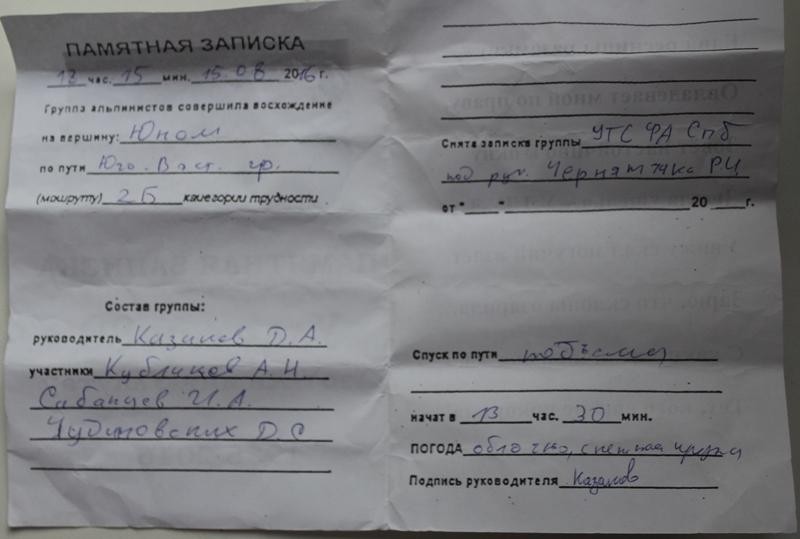 ПАМЯТНАЯ ЗАПИСКА
12 час. 15 мин. 15.08 2016 г.
Группа альпинистов совершила восхождение
на вершину: Юном
по пути Юго. Вост. гр.
(маршруту) 2Б категории трудности
Состав группы:
руководитель Казаков Д.А.
участники Кублицов А.Н.
Сабанцев И.А.
Чудиновских Д.С
Снята записка группы УТС ФА Спб
под рук. 
от " " 20 г.
Спуск по пути подъема
начат в 13 час. 30 мин.
ПОГОДА облачно, снежная крупа
Подпись руководителя Казаков